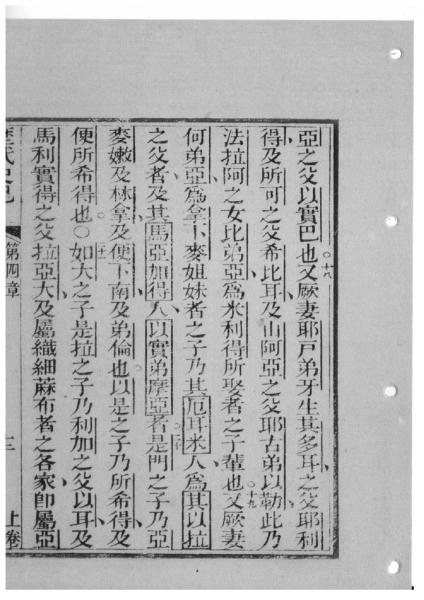 亞之父以實巴也十八又厥妻耶戶弟牙生其多耳之父耶利
得及所可之父希比耳及山阿亞之父耶古弟以勒此乃
法拉阿之女比弟亞為米利得所娶者之子輩也十九又厥妻
何弟亞為拿卜麥姐妹者之子乃其厄耳米人為其以拉
之父者及其馬亞加得人以實弟摩亞者是門之子乃亞
麥嫩及林拿及便卜南及弟倫也以是之子乃所希得及
便所希得也〇如大之子是拉之子乃利加之父以耳及
馬利實得之父拉亞大及屬織細蔴布者之各家即屬亞
第四章 上卷